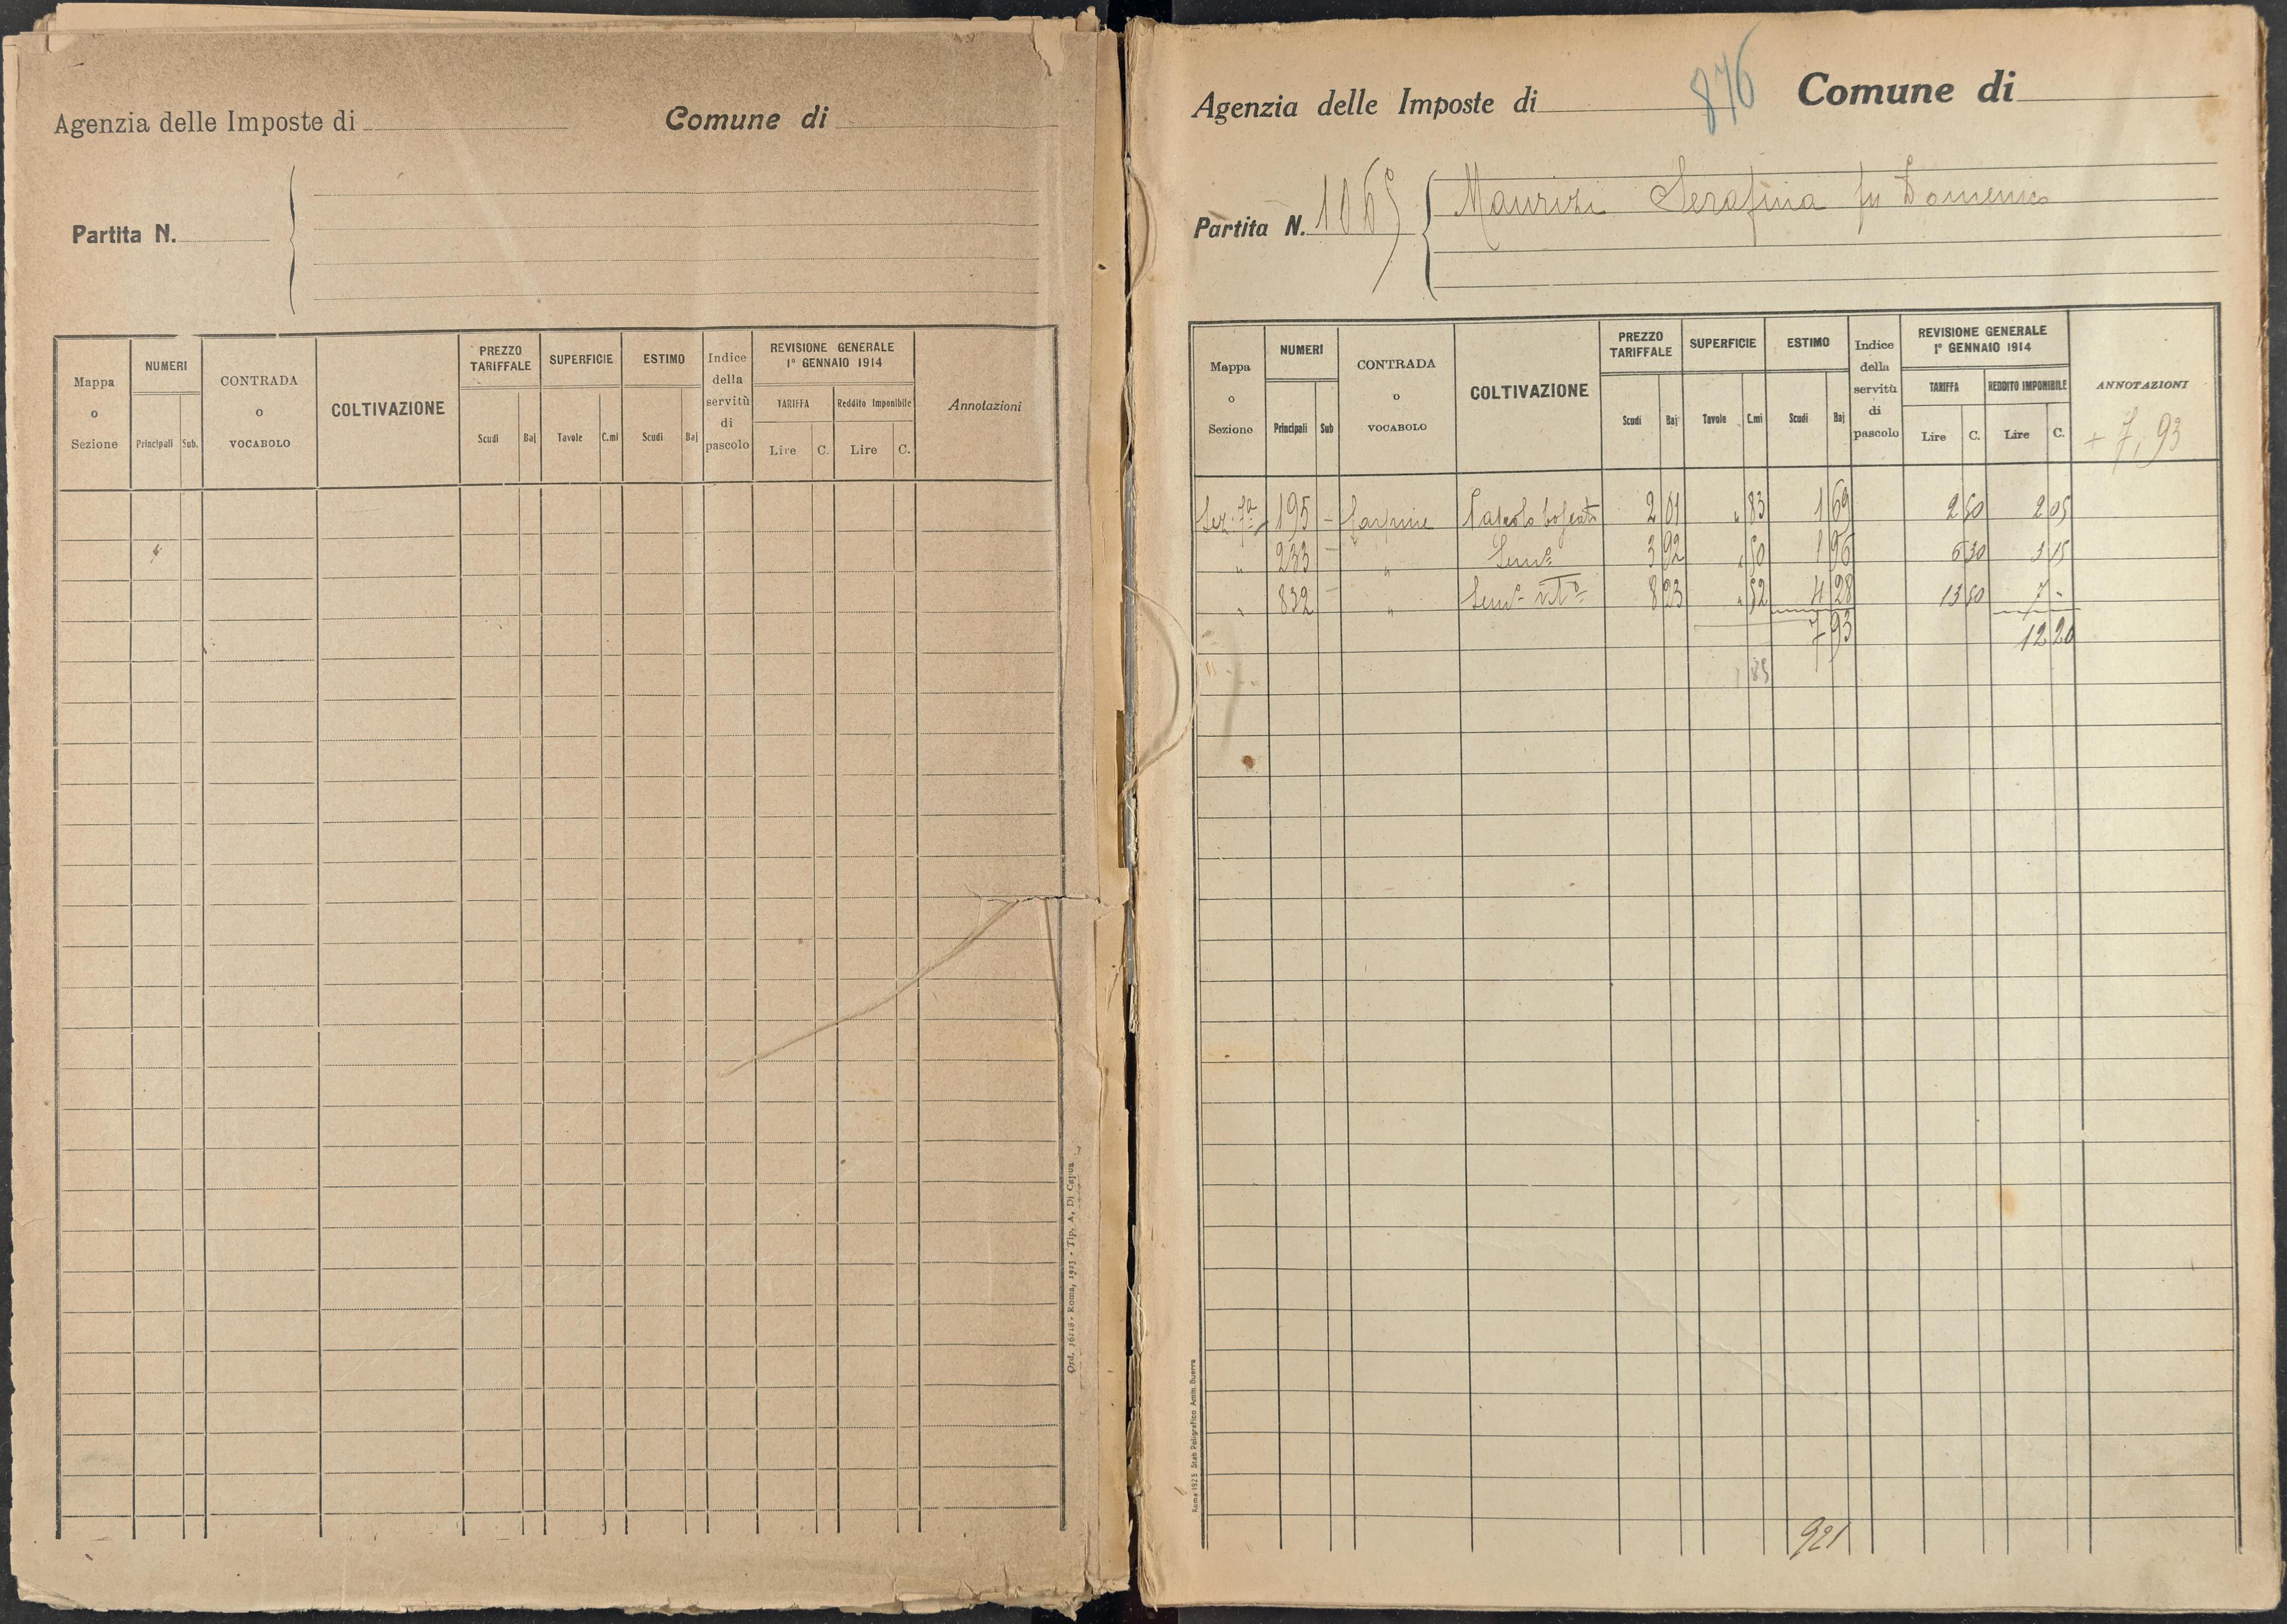 Agenzia delle Imposte di Comune di
Partita N.
Mappa o Sezione NUMERI Principali Sub. CONTRADA o VOCABOLO COLTIVAZIONE PREZZO TARIFFALE Scudi Baj SUPERFICIE Tavole C.mi ESTIMO Scudi Baj Indice della servitù di pascolo REVISIONE GENERALE 1° GENNAIO 1914 TARIFFA Lire C. Reddito Imponibile Lire C. Annotazioni
Ord. 16218 - Roma, 1923 - Tip. A. Di Capua
876
Agenzia delle Imposte di Comune di
Partita N. 1065 Maurizi Serafina fu Domenico
Mappa o Sezione NUMERI Principali Sub CONTRADA o VOCABOLO COLTIVAZIONE PREZZO TARIFFALE Scudi Baj SUPERFICIE Tavole C.mi ESTIMO Scudi Baj Indice della servitù di pascolo REVISIONE GENERALE 1° GENNAIO 1914 TARIFFA Lire C. REDDITO IMPONIBILE Lire C. ANNOTAZIONI
+ 7,93
Sez. 7a 195 - Pascolo boscato 2 01 " 83 1 69 2 50 2 05
" 233 - " Semo 3 92 " 50 1 96 6 30 3 15
" 832 - " Semo vito 8 23 " 52 4 28 13 50 7 -
7 93 12 20
1 85
921
Roma 1923 Stab Poligrafico Amm. Guerra